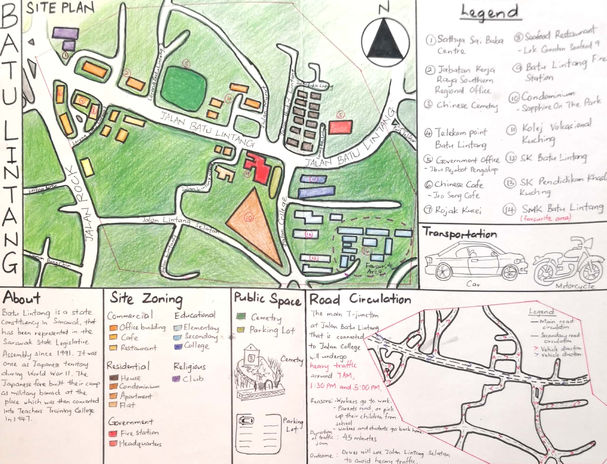 BATU LINTANG
SITE PLAN
N
JALAN BATU LINTANG
JALAN BATU LINTANG
JALAN ROCK
Jalan Lintang Selatan
Jalan College
Favourite
Area
Legend
① Sathya Sai Baba
Centre
② Jabatan Kerja
Raya Southern
Regional Office
③ Chinese Cemetry
④ Telekom point
Batu Lintang
⑤ Government Office
⑥ Chinese Cafe
- Jro Seng Cafe
⑦ Rojak Kucai
⑧ Seafood Restaurant
- Lok Seafood 9
⑨ Batu Lintang Fire
Station
⑩ Condominium
- Sapphire On The Park
⑪ Kolej Vokasional
Kuching
⑫ SK Batu Lintang
⑬ SK Pendidikan Khas
Kuching
⑭ SMK Batu Lintang
(favourite area)
Transportation
Car
Motorcycle
About
Batu Lintang is a state
constituency in Sarawak, that
has been represented in the
Sarawak State Legislative
Assembly since 1991. It was
once as Japanese territory
during World War II. The
Japanese force built their camp
as military barrack at the
place which was then converted
into Teachers Training College
in 1947.
Site Zoning
Commercial
Office building
Cafe
Restaurant
Residential
House
Condominium
Apartment
Flat
Government
Fire station
Headquarters
Educational
Elementary
Secondary
College
Religious
Club
Public Space
Cemetry
Parking Lot
Cemetry
Parking
Lot
Road Circulation
The main T-junction
at Jalan Batu Lintang
that is connected
to Jalan College
will undergo
heavy traffic
around 7AM,
1:30 PM and 5:00 PM
Reasons: - Workers go to work
- Parents send, or pick
up their children from
school
- workers and students go back home
Duration
of traffic
jam : 45 mins
Outcome : Drives will use Jalan Lintang Selatan
to avoid heavy traffic.
Legend
Main road
circulation
Secondary road
circulation
Vehicle direction
vehicle direction